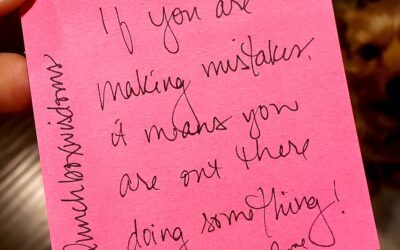 If you are
making mistakes,
it means you
are out there
doing something!
love
lunchboxwisdoms